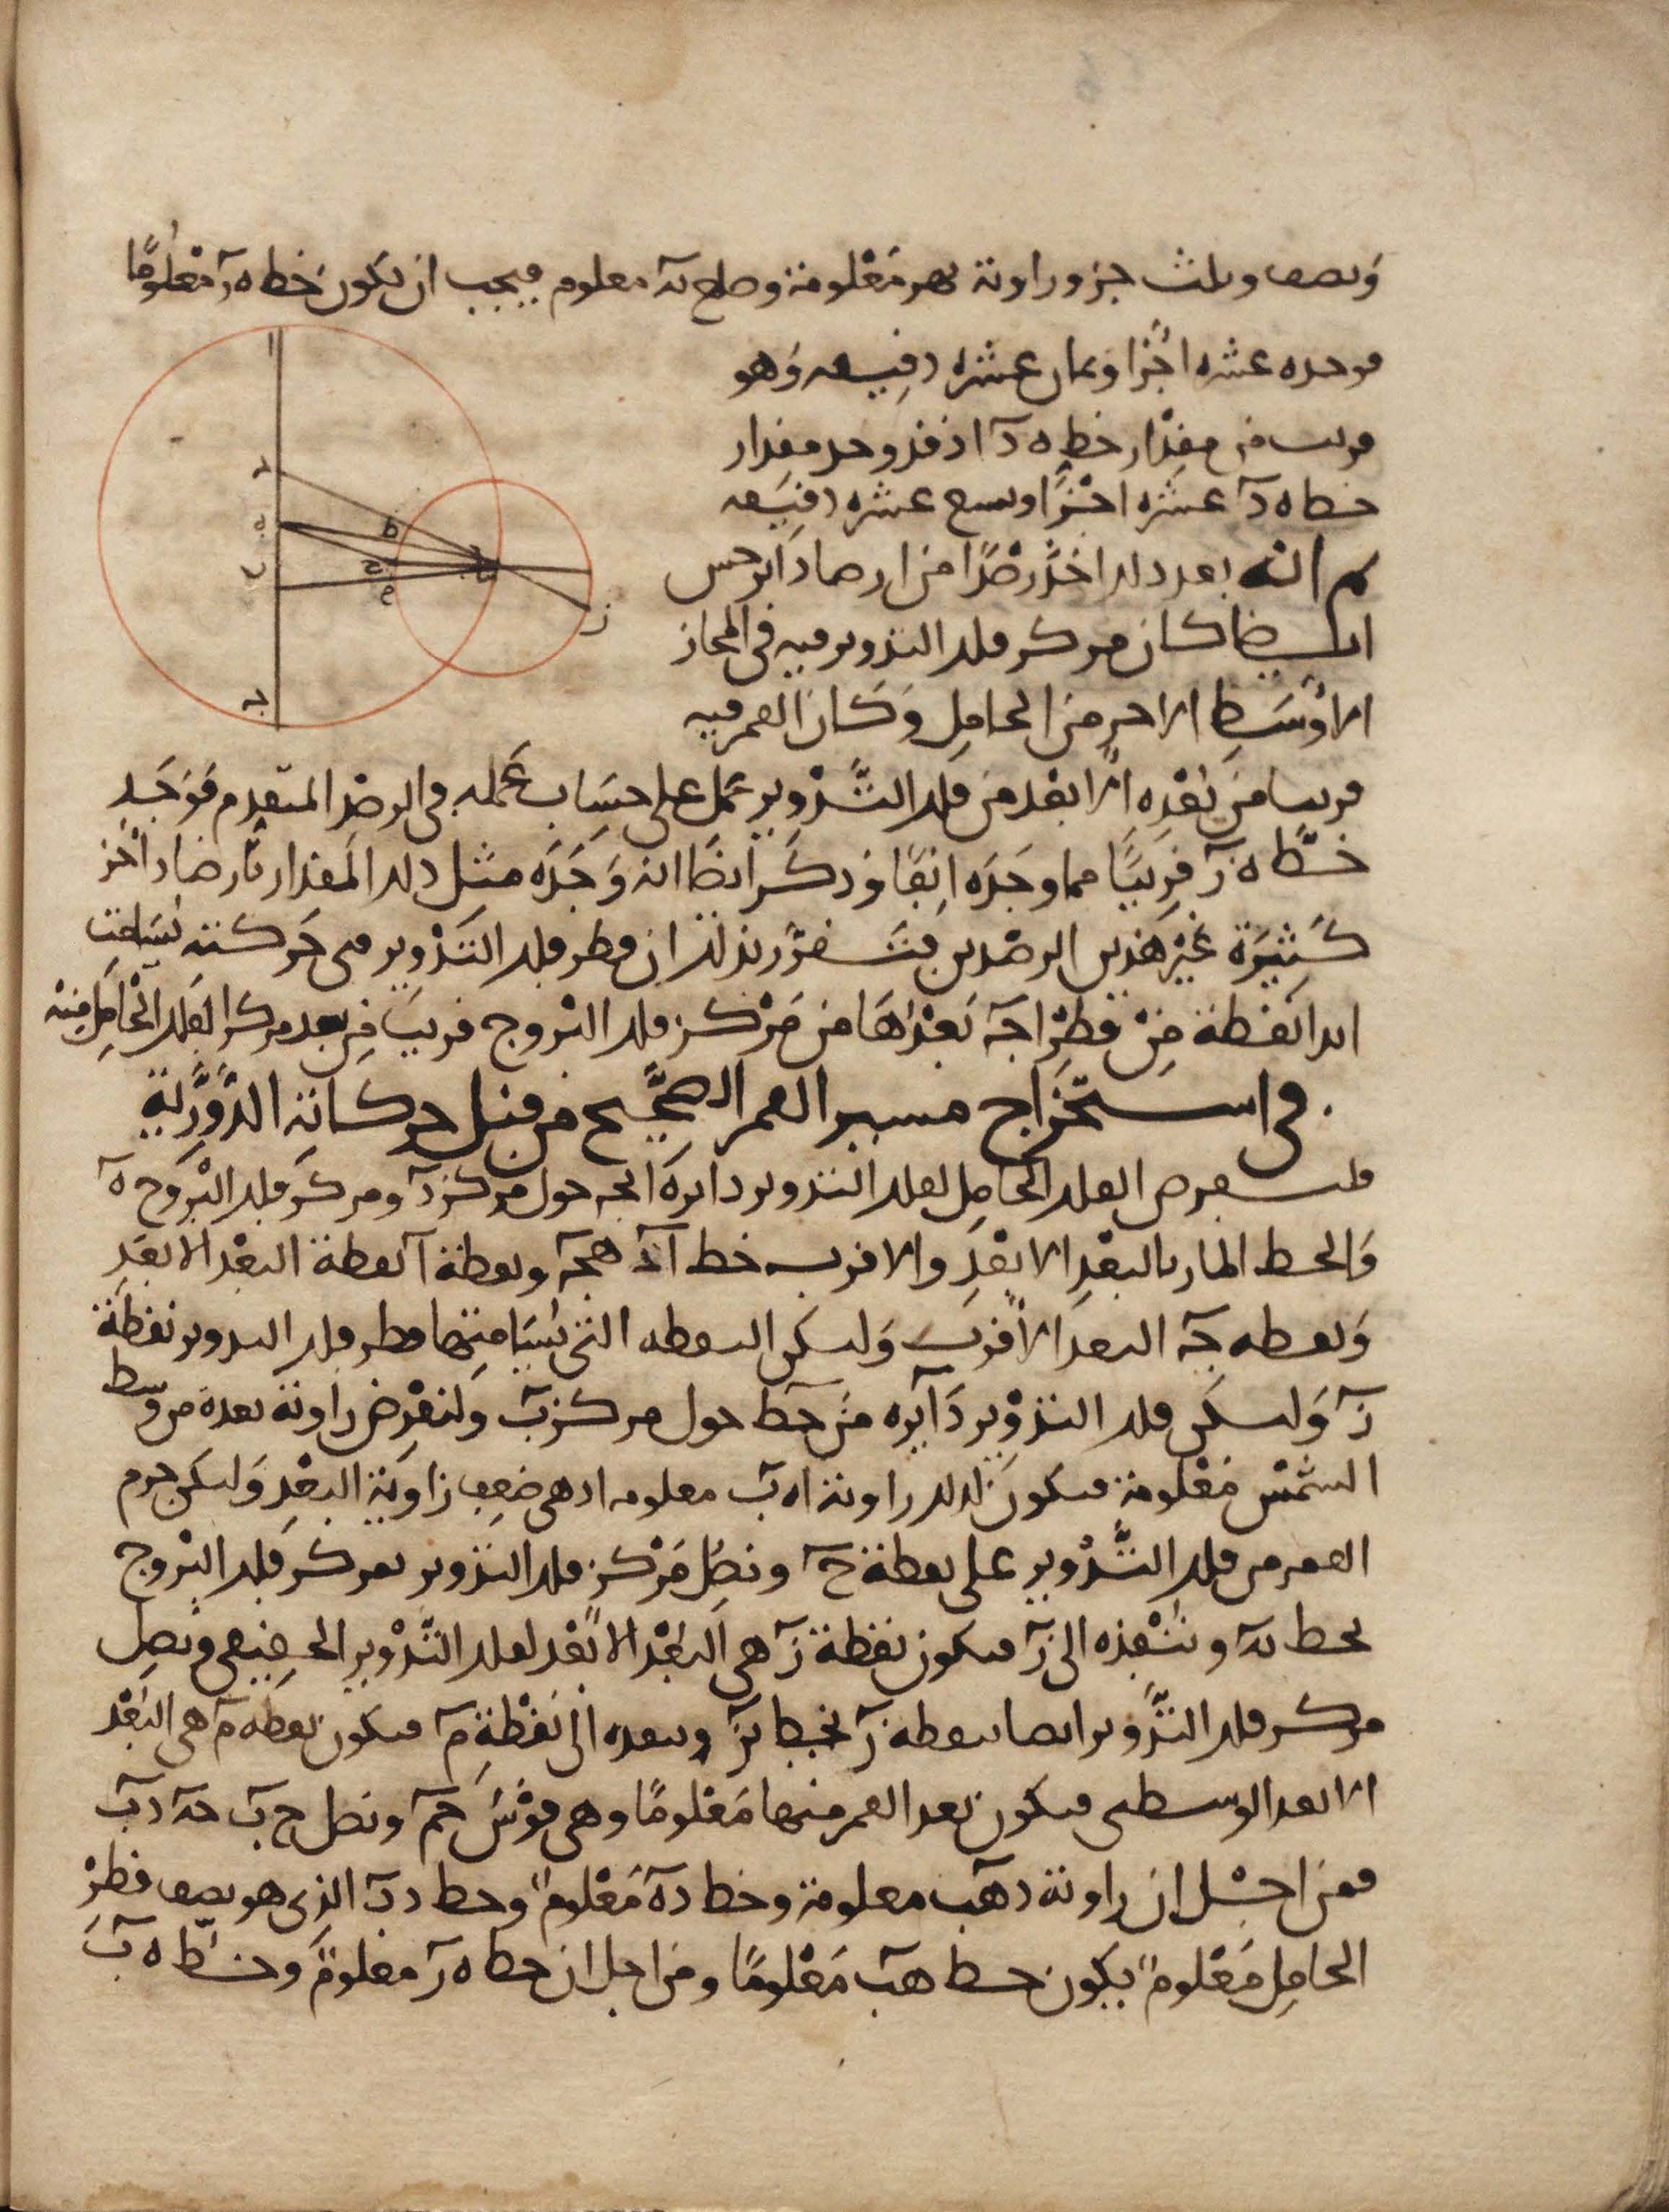 ونصف وثلث جزء وزاوية بهر معلومة وضلع به معلوم فيجب ان يكون خط ه ر معلوما
فوجده عشرة اجزا وثمان عشرة دقيقه وهو
قريب من مقدار خط ه د اذ قد وجد مقدار
خط ه د عشرة اجزا وتسع عشرة دقيقه
ثم انه بعد ذلك اخذ رصدا من ارصاد ابرخس
ايضا كان مركز فلك التدوير فيه في المجاز
الاوسط الاخر من الحامل وكان القمر فيه
قريبا من بعده الابعد من فلك التدوير عمل على حساب عمله في الرصد المتقدم فوجد
خط ه ز قريبا مما وجده انفا وذكر ايضا انه وجده مثل ذلك المقدار بارصاد اخر
كثيرة غير هذين الرصدين فتقرر بذلك ان قطر فلك التدوير في حركته يسامت
ابدا نقطة من قطر اجه بعدها من مركز فلك البروج قريب من بعد مركز الفلك الحامل منه
في استخراج مسير القمر الصحيح من قبل حركاته الدورية
فلنفرض الفلك الحامل لفلك التدوير دايرة ابجه حول مركز د ومركز فلك البروج ه
والخط المار بالبعد الابعد والاقرب خط اد هجه ونقطة ا نقطة البعد الابعد
ونقطه جه البعد الاقرب ولتكن النقطه التي يسامتها قطر فلك التدوير نقطة
ز وليكن فلك التدوير دايره من حط حول مركز ب ولنفرض زاوية بعده من وسط
الشمس معلومة فيكون لذلك زاوية اه ب معلومه اذ هي ضعف زاوية البعد وليكن جرم
القمر من فلك التدوير على نقطة ح ونصل مركز فلك التدوير بمركز فلك البروج
بخط به وننفذه الى ز فيكون نقطة ز هي البعد الابعد لفلك التدوير الحقيقي ونصل
مركز فلك التدوير ايضا بنقطه ر بخط بر وننفذه الى نقطة م فيكون نقطه م هي البعد
الابعد الوسطى فيكون بعد القمر منها معلوما وهي قوس حم ونصل ح ب حه دب
فمن اجل ان زاوية دهب معلومة وخط ده معلوم وخط دب الذي هو نصف قطر
الحامل معلوم يكون خط هب معلوما ومن اجل ان خط ه ر معلوم وخط ه ب
ا
د
ه
ر
جه
ط
ح
م
ب
ز